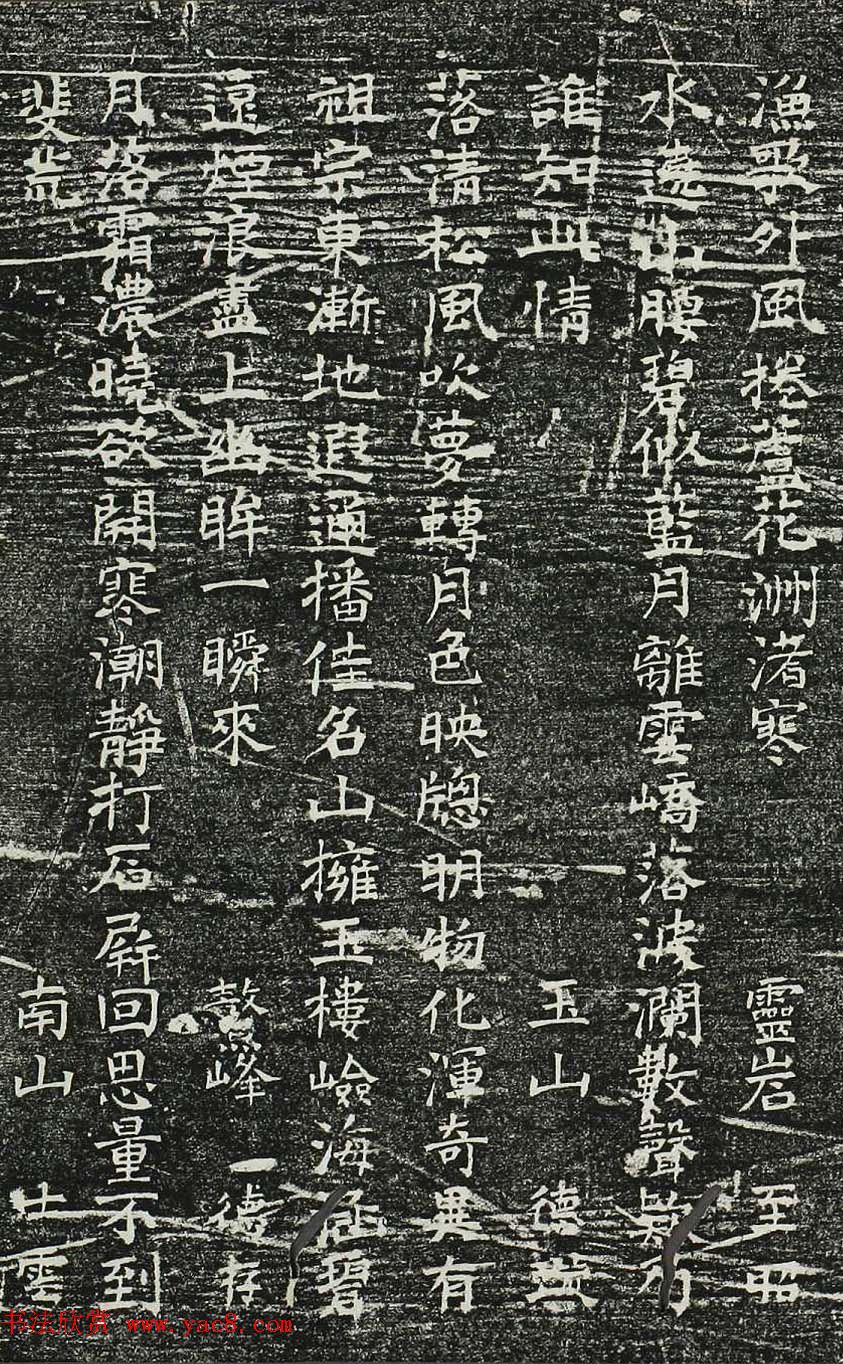 漁歌外風捲蘆花洲渚寒 靈岩 至昭
水遶山腰碧似藍月離雲嶠落波瀾數聲欸乃
誰知此情 玉山 德
落清松風吹夢轉月色映牕明物化渾奇異有
祖宗東漸地遐邇播佳名山擁玉樓嶮海涵碧
遠煙浪盡上幽眸一瞬來 鰲峰 一德存
月落霜濃曉欲開寒潮靜打石屏回思量不到
南山 士雲
书法欣赏 www.yac8.com